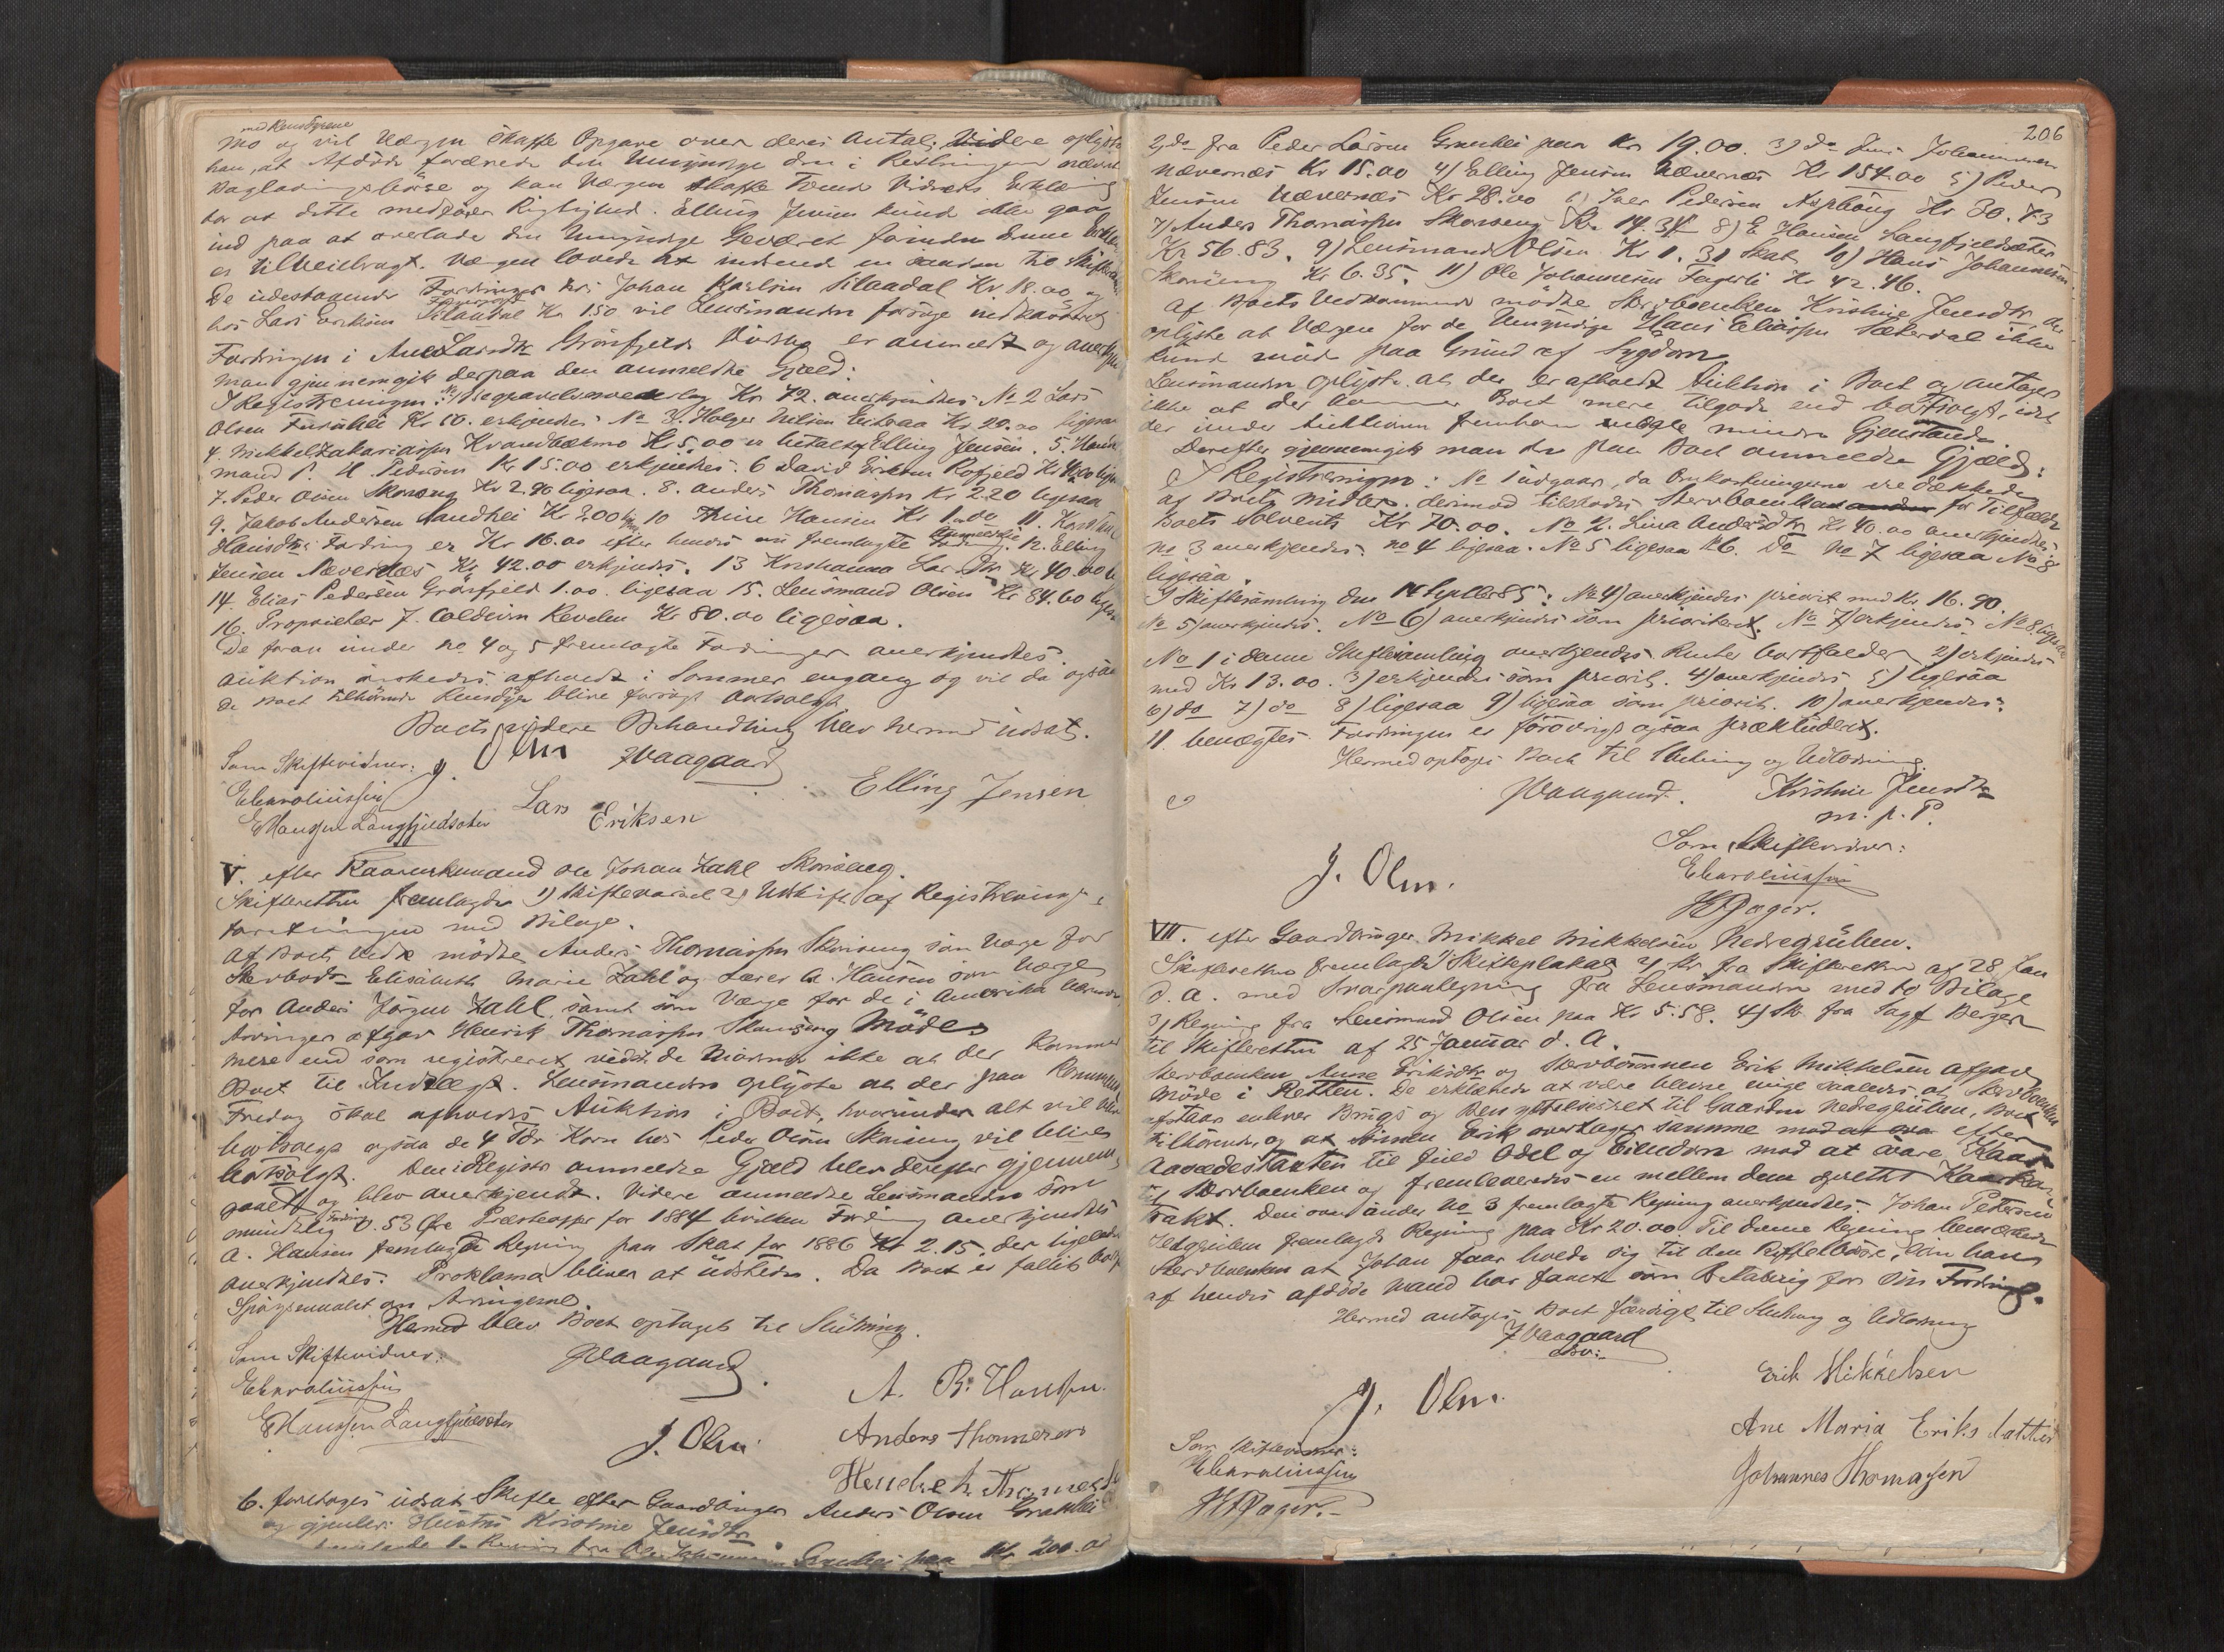 med Rensdyrene
Mo og vil Værgen skaffe Opgave over deres Antal. Videre oplyste
han, at Afdøde forærede den Umyndige den i Registreringen nævnte
Bagladningsbørse og kan Værgen skaffe Vidners Erklæring
for at dette medfører Rigtighed. Elling Jensen kunde ikke gaa
ind paa at overlade den Umyndige Geværet førinden denne Erklær
er tilveiebragt. Værgen lovede at indsende en saadan til Skifteretten
De udestaaende Fordringer hos Johan Karlsen Kr 18.00 og
hos Lars Eriksen Kr 150 vil Lensmanden forsøge indkasseret
Fordringen i Ane Larsdtr Grønfjeld Dødsbo er anmeldt og anerkjendt
Man gjennemgik derpaa den anmeldte Gjæld:
I Registreringen: No 1 Begravelsesvederlag Kr 72. anerkjendtes No 2 Lars
Olsen Kr 10. erkjendes No 3. Holger Nilsen Kr 20.00 ligesaa
4. Mikkel Zakariassen Kvandbækmo Kr 5,00 er betalt af Elling Jensen. 5. Handels
mand P. H. Pedersen Kr 15.00 erkjendtes. 6 David Eriksen Rofjeld Kr 42.00 ligesaa
7. Peder Olsen Skonseng Kr 2.90 ligesaa. 8. Anders Thomassen Kr 2.20 ligesaa
9. Jakob Andersen Sandhei Kr 2.00 10 Trine Hansen Kr 1.00 11. Karen
Hansdtrs Fordring er Kr 16.00 efter hendes nu fremlagte anmeldte 12. Elling
Jensen Nævernes Kr 42.00 erkjendes. 13 Kristianna Larsdtr Kr 40.00
14. Elias Pedersen Grønfjeld 1.00. ligesaa 15. Lensmand Olsen Kr 84.60 ligesaa
16. Proprietær J. Coldevin Kr 80.00 ligesaa.
De foran under No 4 og 5 fremlagte Fordringer anerkjendtes.
Auktion ønskedes afholdt i Sommer engang og vil da ogsaa
de Boet tilhørende Rensdyr blive forsøgt bortsolgt
Boets videre Behandling blev hermed udsat.
Som Skiftevidner: J. Olsen JVaagaard
EKaroliussen Elling Jensen
EHanssen Langfjeldsæter Lars Eriksen
V. efter Kaarenkemand Ole Johan Zahl Skonseng.
Skifteretten fremlagde 1) Skiftevarsel 2) Udskift af Registrerings-
forretningen med Bilage.
Af Boets Vedk mødte Anders Thomassen Skonseng som Værge for
Stervbods Elisabeth Marie Zahl og Lærer A. Hansen som Værge
for Anders Jørgen Zahl, samt som Værge for de i Amerika værende
Arvinger afgav Henrik Thomassen Skonseng Møde.
Mere end som registreret vidste de Nærvær ikke at der kommer
Boet til Indtægt. Lensmanden oplyste at der paa kommende
Fredag skal afholdes Auktion i Boet, hvorunder alt vil blive
bortsolgt ogsaa de 4 Tdr Korn hos Peder Olsen Skonseng vil blive
bortsolgt. Den i Registr anmeldte Gjæld blev derefter gjennem-
gaaet og blev anerkjendt. Videre anmeldte Lensmanden som
mundtlig Fordring 0.53 Øre Præsteoffer for 1884 hvilken Fordring anerkjendtes
A. Hansen fremlagde Regning paa Skat for 1886 Kr 2.15, der ligeledes
anerkjendtes. Proklama bliver at udstede. Da Boet er fallit bortf
Spørgsmaalet om Arvingerne.
Hermed blev Boet optaget til Slutning.
Som Skiftevidner: JVaagaard.
EKaroliussen A. B. Hanssen.
EHanssen Langfjeldsæter J. Olsen Anders Thommesen
Hendrek Thommesen
6. foretoges udsat Skifte efter Gaardbruger Anders Olsen Grønhei
og gjenlev: Hustru Kristine Jensdtr.
Regning fra Ole Johannesen Grønhei paa Kr 200.00
206
2) do fra Peder Larsen Grønhei paa Kr 19.00. 3) do Jens Johannesen
Nævernæs Kr 15.00 4) Elling Jensen Nævernæs Kr 154.00 5) Peder
Jensen Nævernæs Kr 28.00 6) Iver Pedersen Asphaug Kr 30.73
7) Anders Thomassen Skonseng Kr 14.34 8) E Hansen Langfjeldsæter
Kr 56.83. 9) Lensmand Olsen Kr 1.31 Skat 10) Hans Johannesen
Skonseng Kr 6.35. 11) Ole Johannesen Fagerli Kr 42.46.
Af Boets Vedkommende mødte Stervboenken Kristine Jensdtr, der
oplyste at Værgen for de Umyndige Hans Eliassen Sæterdal ikke
kunde møde paa Grund af Sygdom.
Lensmanden oplyste at der er afholdt Auktion i Boet og antages
ikke at der kommer Boet mere tilgode end bortsolgt, idet
der under Auktionen fremkom nogle mindre Gjenstande.
Derefter gjennemgik man den paa Boet anmeldte Gjæld:
I Registreringen: No 1 udgaar, da Omkostningerne ere dækkede
af Boets Midler. derimod tilstodes Stervboenken for Tilfælde
Boets Solvents Kr 70.00. No 2. Lina Andersdtr Kr 40.00 anerkjendtes
No 3 anerkjendtes. No 4 ligesaa. No 5 ligesaa No 6. Do No 7 ligesaa No 8
ligesaa.
I Skiftesamling den 14 Septbr 85: No 4) anerkjendes priorit med Kr. 16.90.
No 5) anerkjendes. No 6) anerkjendes som prioriteret. No 7) erkjendes. No 8 ligesaa
No 1 i denne Skiftesamling anerkjendes Renter bortfalder 2) erkjendes
med Kr 13.00. 3) erkjendes som priorit. 4) anerkjendes 5) ligesaa
6) do 7) do 8) ligesaa 9) ligesaa som priorit. 10) anerkjendes:
11. benægtes. Fordringen er forøvrigt ogsaa prækluderet.
Hermed optages Boet til Slutning og Udlodning.
JVaagaard. Kristine Jensdtr
m. p. P.
Som Skiftevidner:
J. Olsen. EKaroliussen
HJæger.
VII. efter Gaardbruger Mikkel Mikkelsen Nedregrulien.
Skifteretten fremlagde 1) Skifteplakat 2) Skr fra Skifteretten af 28 Jan
d. A. med Svarpaategning fra Lensmanden med to Bilage
3) Regning fra Lensmand Olsen paa Kr 5.58. 4) Skr fra Sagf Berger
til Skifteretten af 25 Januar d. A.
Stervboenken Anne Eriksdtr og Stervbosønnen Erik Mikkelsen afgav
Møde i Retten. De erklærede at være blevne enige saaledes, at Stervboenken
afstaar enhver Brugs og Benyttelsesret til Gaarden Nedregrulien, Boet
tilhørende, og at Sønnen Erik overtager samme mod at svare efter
Aasædestaxten til fuld Odel og Eiendom mod at svare Kaar
til Stervboenken og fremleveredes en mellem dem oprettet Kaarkon-
trakt. Den oven under No 3 fremlagte Regning anerkjendtes. Johan Petersen
fremlagde Regning paa Kr 20.00 Til denne Regning bemærkede
Stervboenken at Johan faar holde sig til den Riffelbørse, som han
af hendes afdøde Mand har faaet som Betaling for sin Fordring.
Hermed antoges Boet færdigt til Slutning og Udlodning
JVaagaard
J. Olsen. Erik Mikkelsen
Ane Maria Eriks datter
Som Skiftevidner: Johannes Thomassen
EKaroliussen
HJæger.